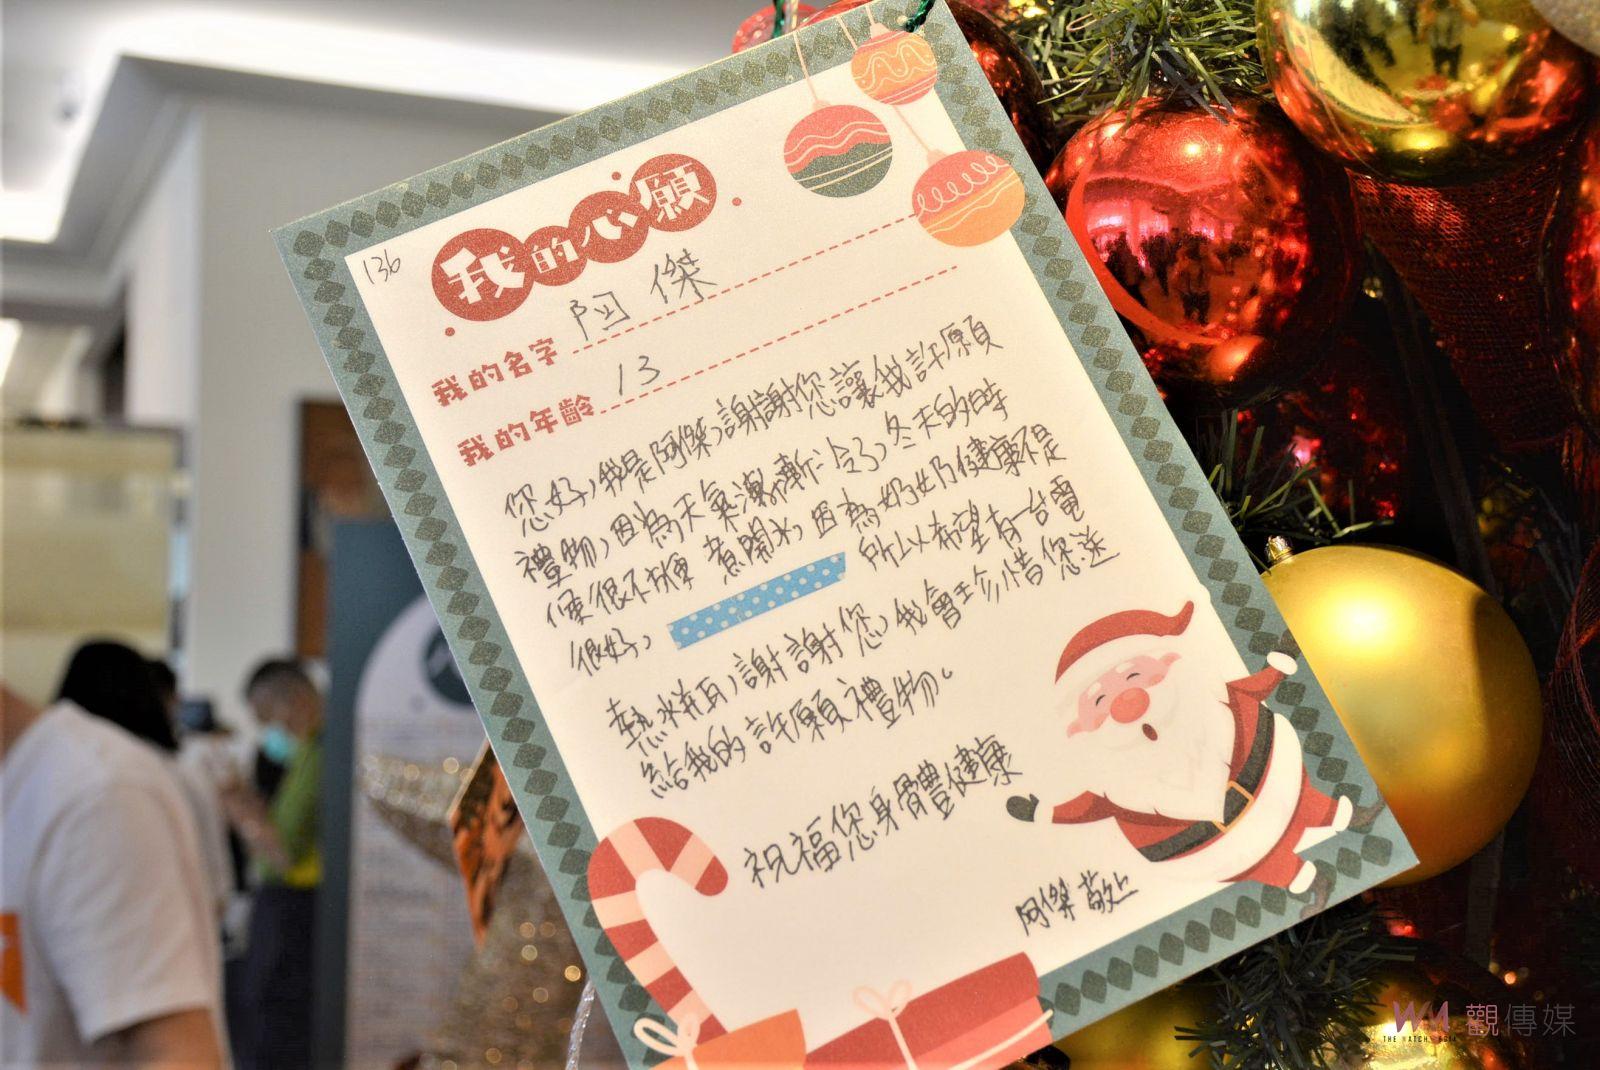 136
我的心願
我的名字 阿傑
我的年齡 13
您好，我是阿傑，謝謝您讓我許願
禮物，因為天氣漸漸冷了，冬天的時
候很不方便 煮開水，因為奶奶健康不是
很好， 所以希望有一台電
熱水瓶，謝謝您，我會珍惜您送
給我的許願禮物。
祝福您身體健康
阿傑 敬上
WM 觀傳媒
THE WATCH MEDIA